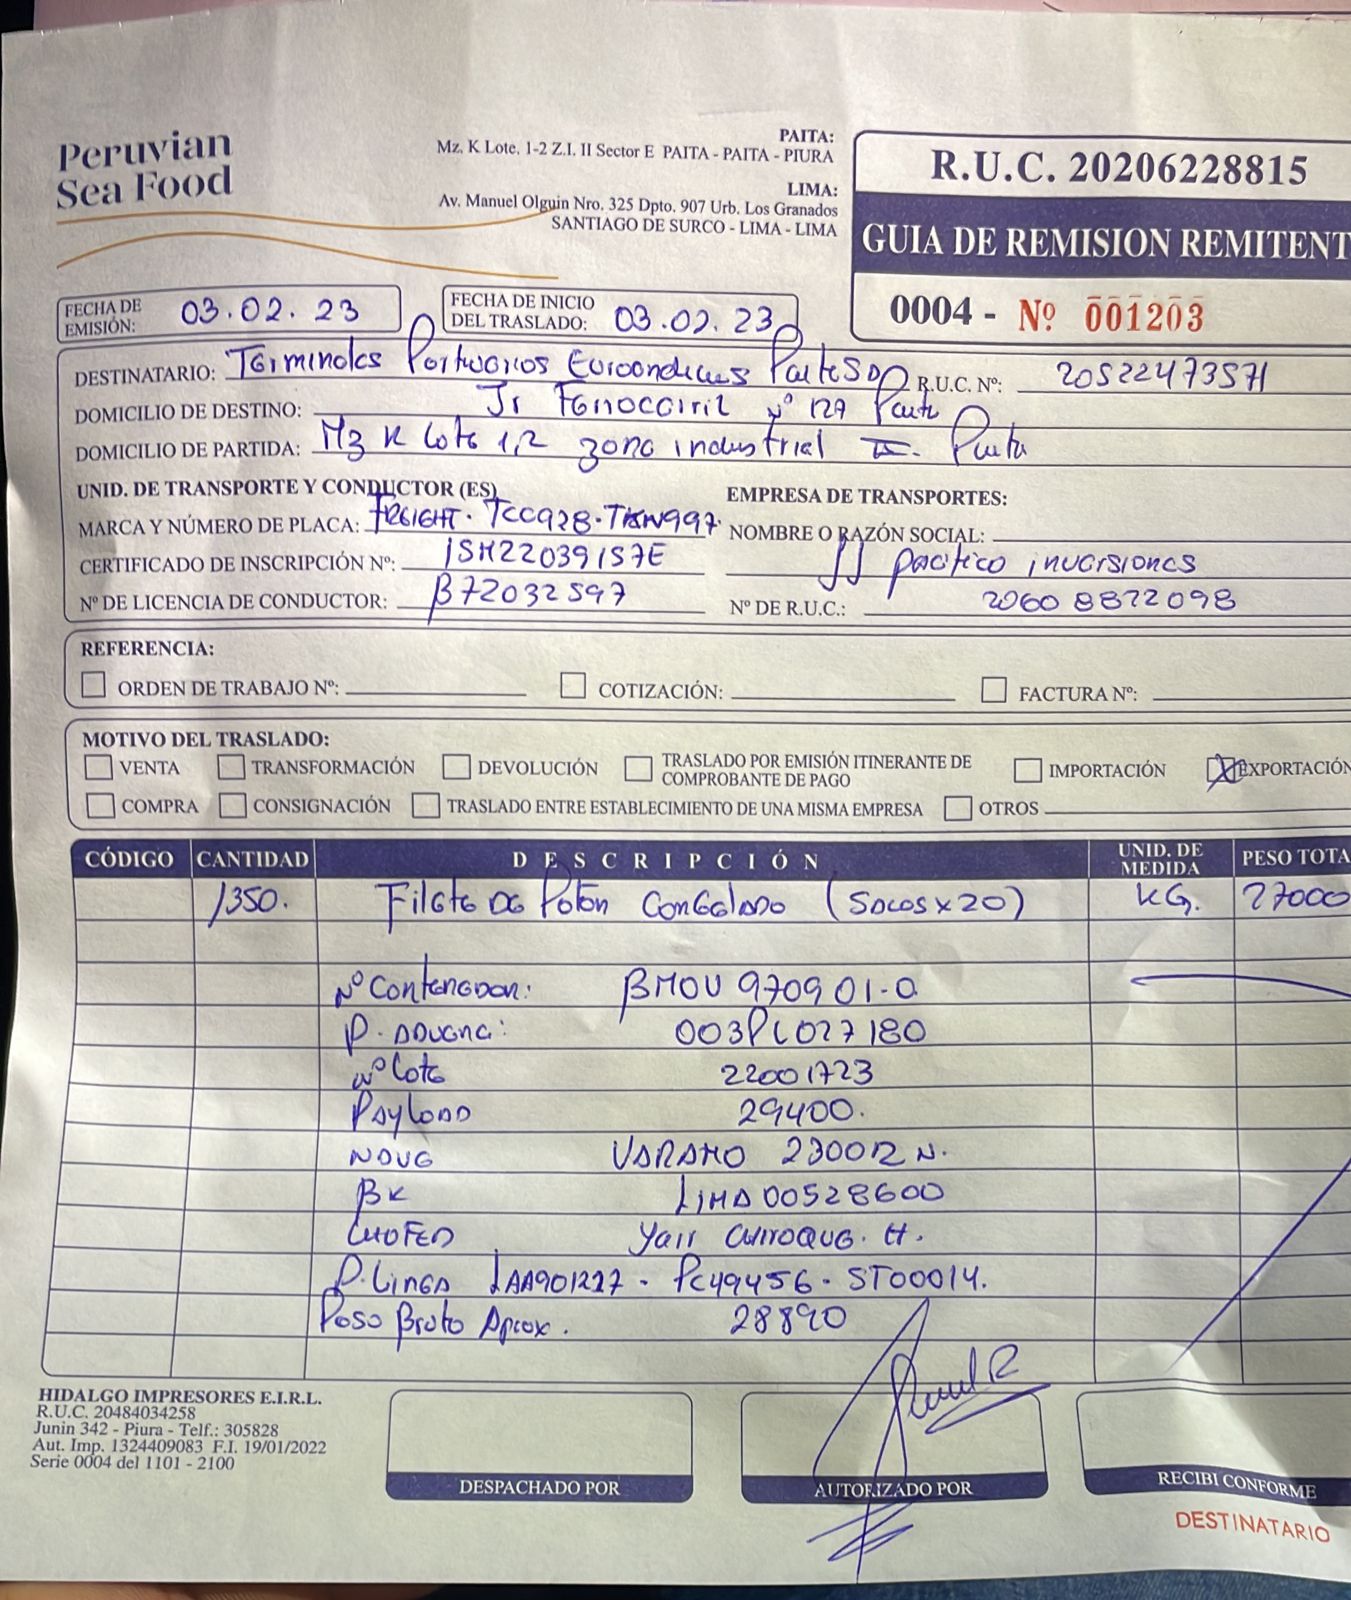 Peruvian
Sea Food
PAITA:
Mz. K Lote. 1-2 Z.I. II Sector E PAITA - PAITA - PIURA
LIMA:
Av. Manuel Olguin Nro. 325 Dpto. 907 Urb. Los Granados
SANTIAGO DE SURCO - LIMA - LIMA
R.U.C. 20206228815
GUIA DE REMISION REMITENT
0004 - Nº 001203
FECHA DE EMISIÓN: 03.02.23
FECHA DE INICIO DEL TRASLADO: 03.02.23
DESTINATARIO: Terminales Portuarios Euroandinos Paita SA R.U.C. Nº: 20522473571
DOMICILIO DE DESTINO: Jr Ferrocarril Nº 127 Paita
DOMICILIO DE PARTIDA: Mz K Lote 1,2 zona industrial II. Paita
UNID. DE TRANSPORTE Y CONDUCTOR (ES)
EMPRESA DE TRANSPORTES:
MARCA Y NÚMERO DE PLACA: FREIGHT. TCC928. TKN997
NOMBRE O RAZÓN SOCIAL:
CERTIFICADO DE INSCRIPCIÓN Nº: 15M22039157E
JJ pacifico inversiones
Nº DE LICENCIA DE CONDUCTOR: B72032597
Nº DE R.U.C.: 20608872098
REFERENCIA:
ORDEN DE TRABAJO Nº: COTIZACIÓN: FACTURA Nº:
MOTIVO DEL TRASLADO:
VENTA TRANSFORMACIÓN DEVOLUCIÓN TRASLADO POR EMISIÓN ITINERANTE DE COMPROBANTE DE PAGO IMPORTACIÓN EXPORTACIÓN
COMPRA CONSIGNACIÓN TRASLADO ENTRE ESTABLECIMIENTO DE UNA MISMA EMPRESA OTROS
CÓDIGO CANTIDAD DESCRIPCIÓN UNID. DE MEDIDA PESO TOTA
1350. Filete de Poton Congelado (Sacos x 20) KG. 27000
Nº Contenedor: BMOU 970901-0
P. Aduana: 003PL027180
Nº Lote 22001723
Payload 29400.
Nave VARAMO 230012 N.
BK LIMA00528600
Chofer Yair Chiroque. H.
P. Linea LAA901227 - PC49456 - ST00014.
Peso Bruto Aprox. 28890
HIDALGO IMPRESORES E.I.R.L.
R.U.C. 20484034258
Junin 342 - Piura - Telf.: 305828
Aut. Imp. 1324409083 F.I. 19/01/2022
Serie 0004 del 1101 - 2100
DESPACHADO POR
AUTORIZADO POR
RECIBI CONFORME
DESTINATARIO